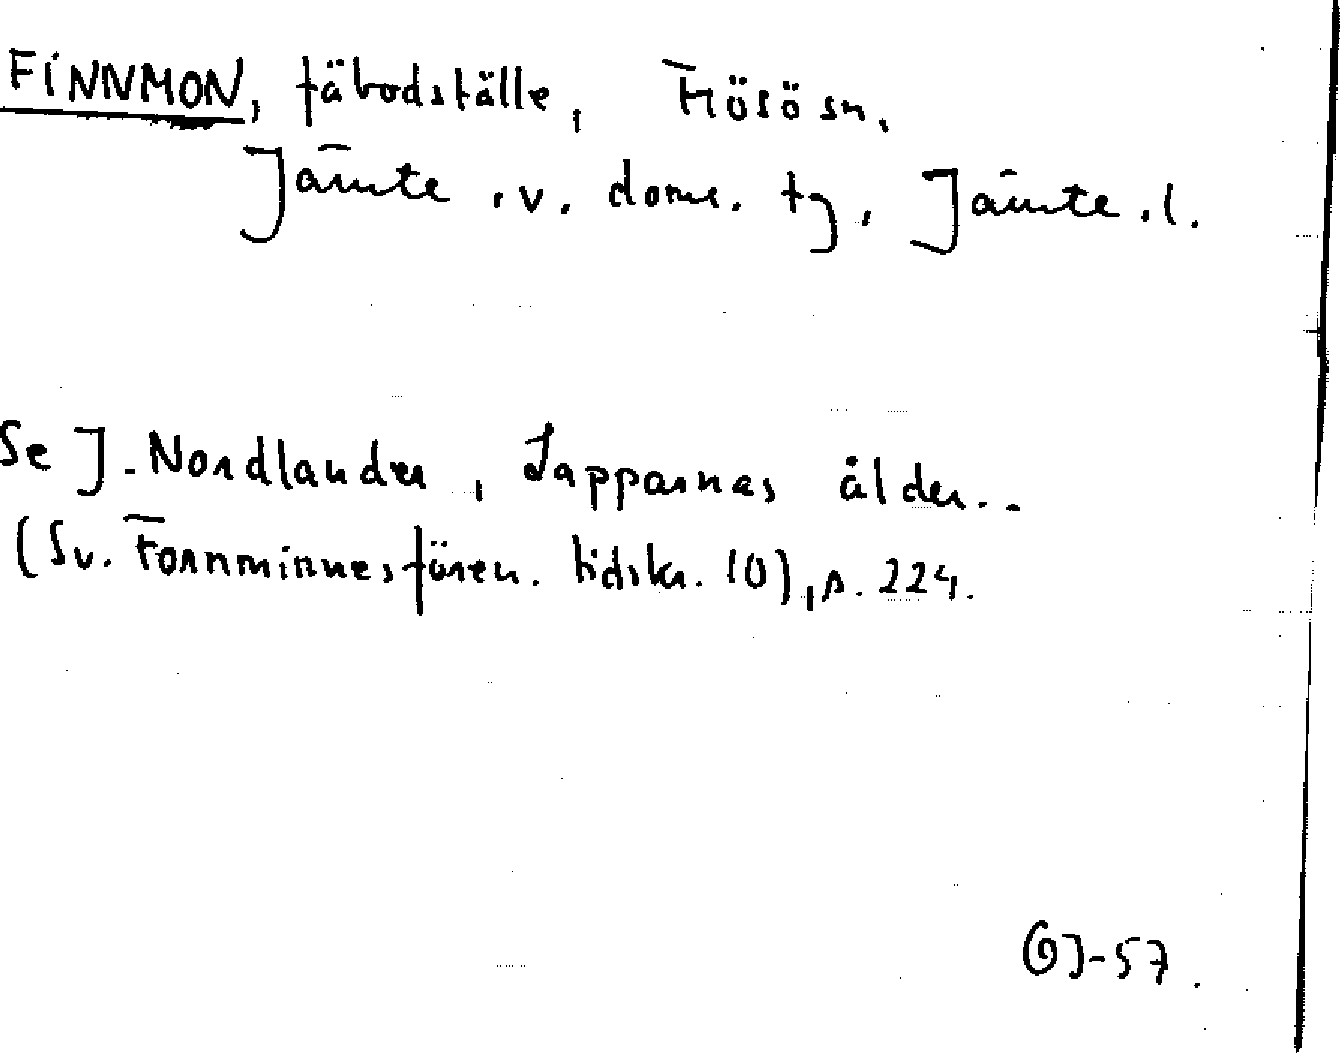 FINNMON, fäbodställe, Frösö sn,
Jämte. v. doms. tg, Jämte. l.
Se J. Nordlander, Lapparnas ålder..
(Sv. Fornminnesfören. tidskr. 10), s. 224.
GJ-57.